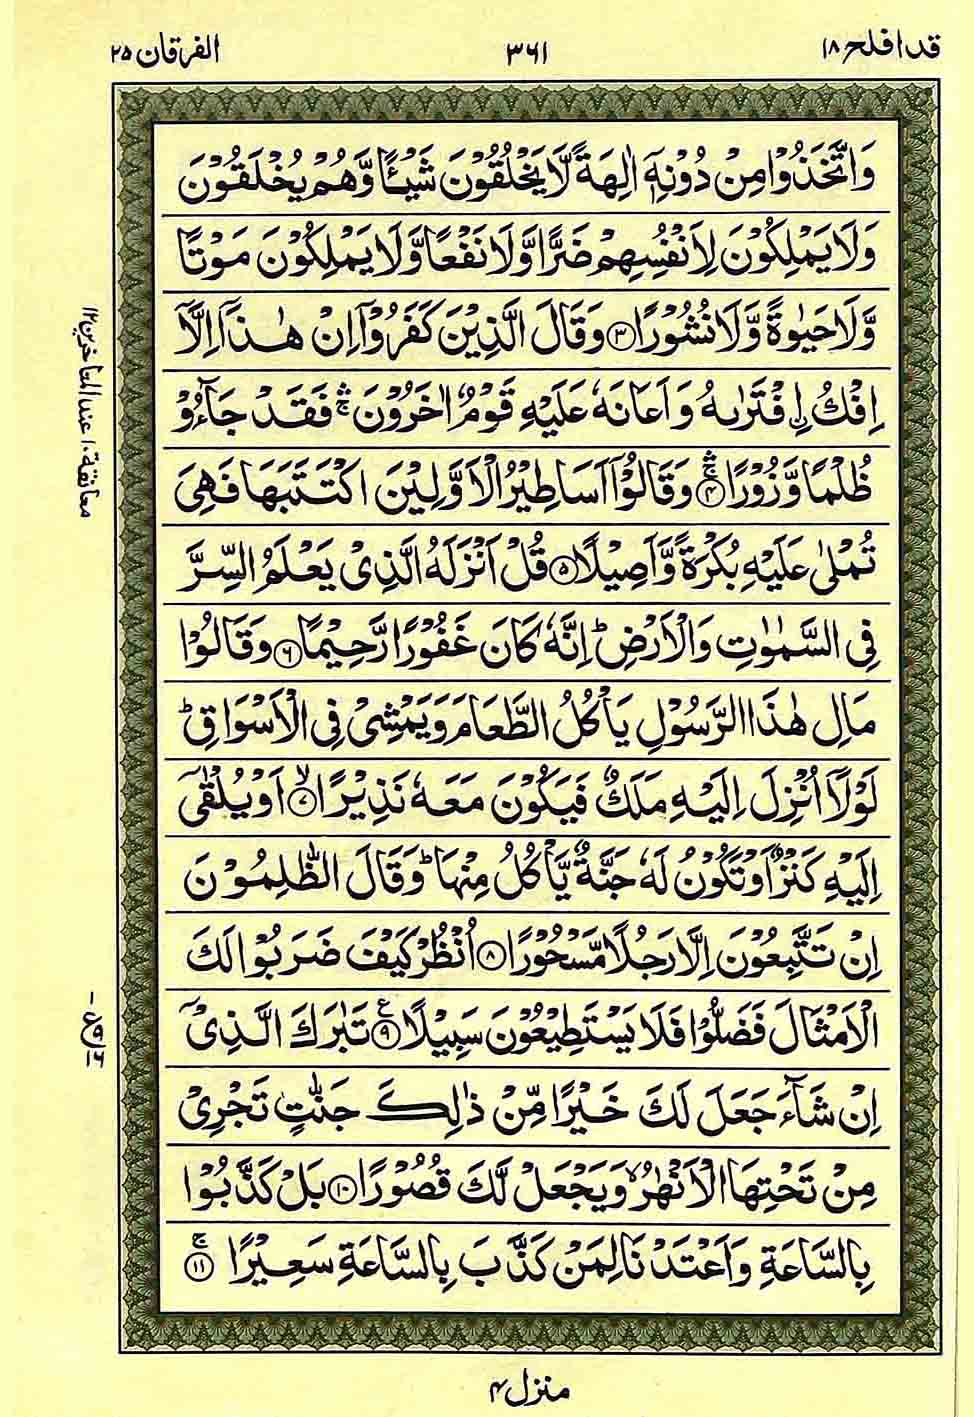 قد افلح ١٨
٣٦١
الفرقان ٢٥
وَاتَّخَذُوْا مِنْ دُوْنِهٖۤ اٰلِهَةً لَّا يَخْلُقُوْنَ شَيْـًٔا وَّهُمْ يُخْلَقُوْنَ
وَلَا يَمْلِكُوْنَ لِاَنْفُسِهِمْ ضَرًّا وَّلَا نَفْعًا وَّلَا يَمْلِكُوْنَ مَوْتًا
وَّلَا حَيٰوةً وَّلَا نُشُوْرًا ۝٣ وَقَالَ الَّذِيْنَ كَفَرُوْۤا اِنْ هٰذَاۤ اِلَّاۤ
اِفْكُ اِۨفْتَرٰىهُ وَاَعَانَهٗ عَلَيْهِ قَوْمٌ اٰخَرُوْنَ ۛۚ فَقَدْ جَآءُوْ
ظُلْمًا وَّزُوْرًا ۛۚ ۝٤ وَقَالُوْۤا اَسَاطِيْرُ الْاَوَّلِيْنَ اكْتَتَبَهَا فَهِيَ
تُمْلٰى عَلَيْهِ بُكْرَةً وَّاَصِيْلًا ۝٥ قُلْ اَنْزَلَهُ الَّذِيْ يَعْلَمُ السِّرَّ
فِي السَّمٰوٰتِ وَالْاَرْضِ ؕ اِنَّهٗ كَانَ غَفُوْرًا رَّحِيْمًا ۝٦ وَقَالُوْا
مَالِ هٰذَا الرَّسُوْلِ يَاْكُلُ الطَّعَامَ وَيَمْشِيْ فِي الْاَسْوَاقِ ؕ
لَوْلَاۤ اُنْزِلَ اِلَيْهِ مَلَكٌ فَيَكُوْنَ مَعَهٗ نَذِيْرًا ۙ۝٧ اَوْ يُلْقٰۤى
اِلَيْهِ كَنْزٌ اَوْ تَكُوْنُ لَهٗ جَنَّةٌ يَّاْكُلُ مِنْهَا ؕ وَقَالَ الظّٰلِمُوْنَ
اِنْ تَتَّبِعُوْنَ اِلَّا رَجُلًا مَّسْحُوْرًا ۝٨ اُنْظُرْ كَيْفَ ضَرَبُوْا لَكَ
الْاَمْثَالَ فَضَلُّوْا فَلَا يَسْتَطِيْعُوْنَ سَبِيْلًا ۠۝٩ تَبٰرَكَ الَّذِيْۤ
اِنْ شَآءَ جَعَلَ لَكَ خَيْرًا مِّنْ ذٰلِكَ جَنّٰتٍ تَجْرِيْ
مِنْ تَحْتِهَا الْاَنْهٰرُ ۙ وَيَجْعَلْ لَّكَ قُصُوْرًا ۝١٠ بَلْ كَذَّبُوْا
بِالسَّاعَةِ وَاَعْتَدْنَا لِمَنْ كَذَّبَ بِالسَّاعَةِ سَعِيْرًا ۚ۝١١
معانقة ١٠ عند المتاخرين ١٢
منزل ٤